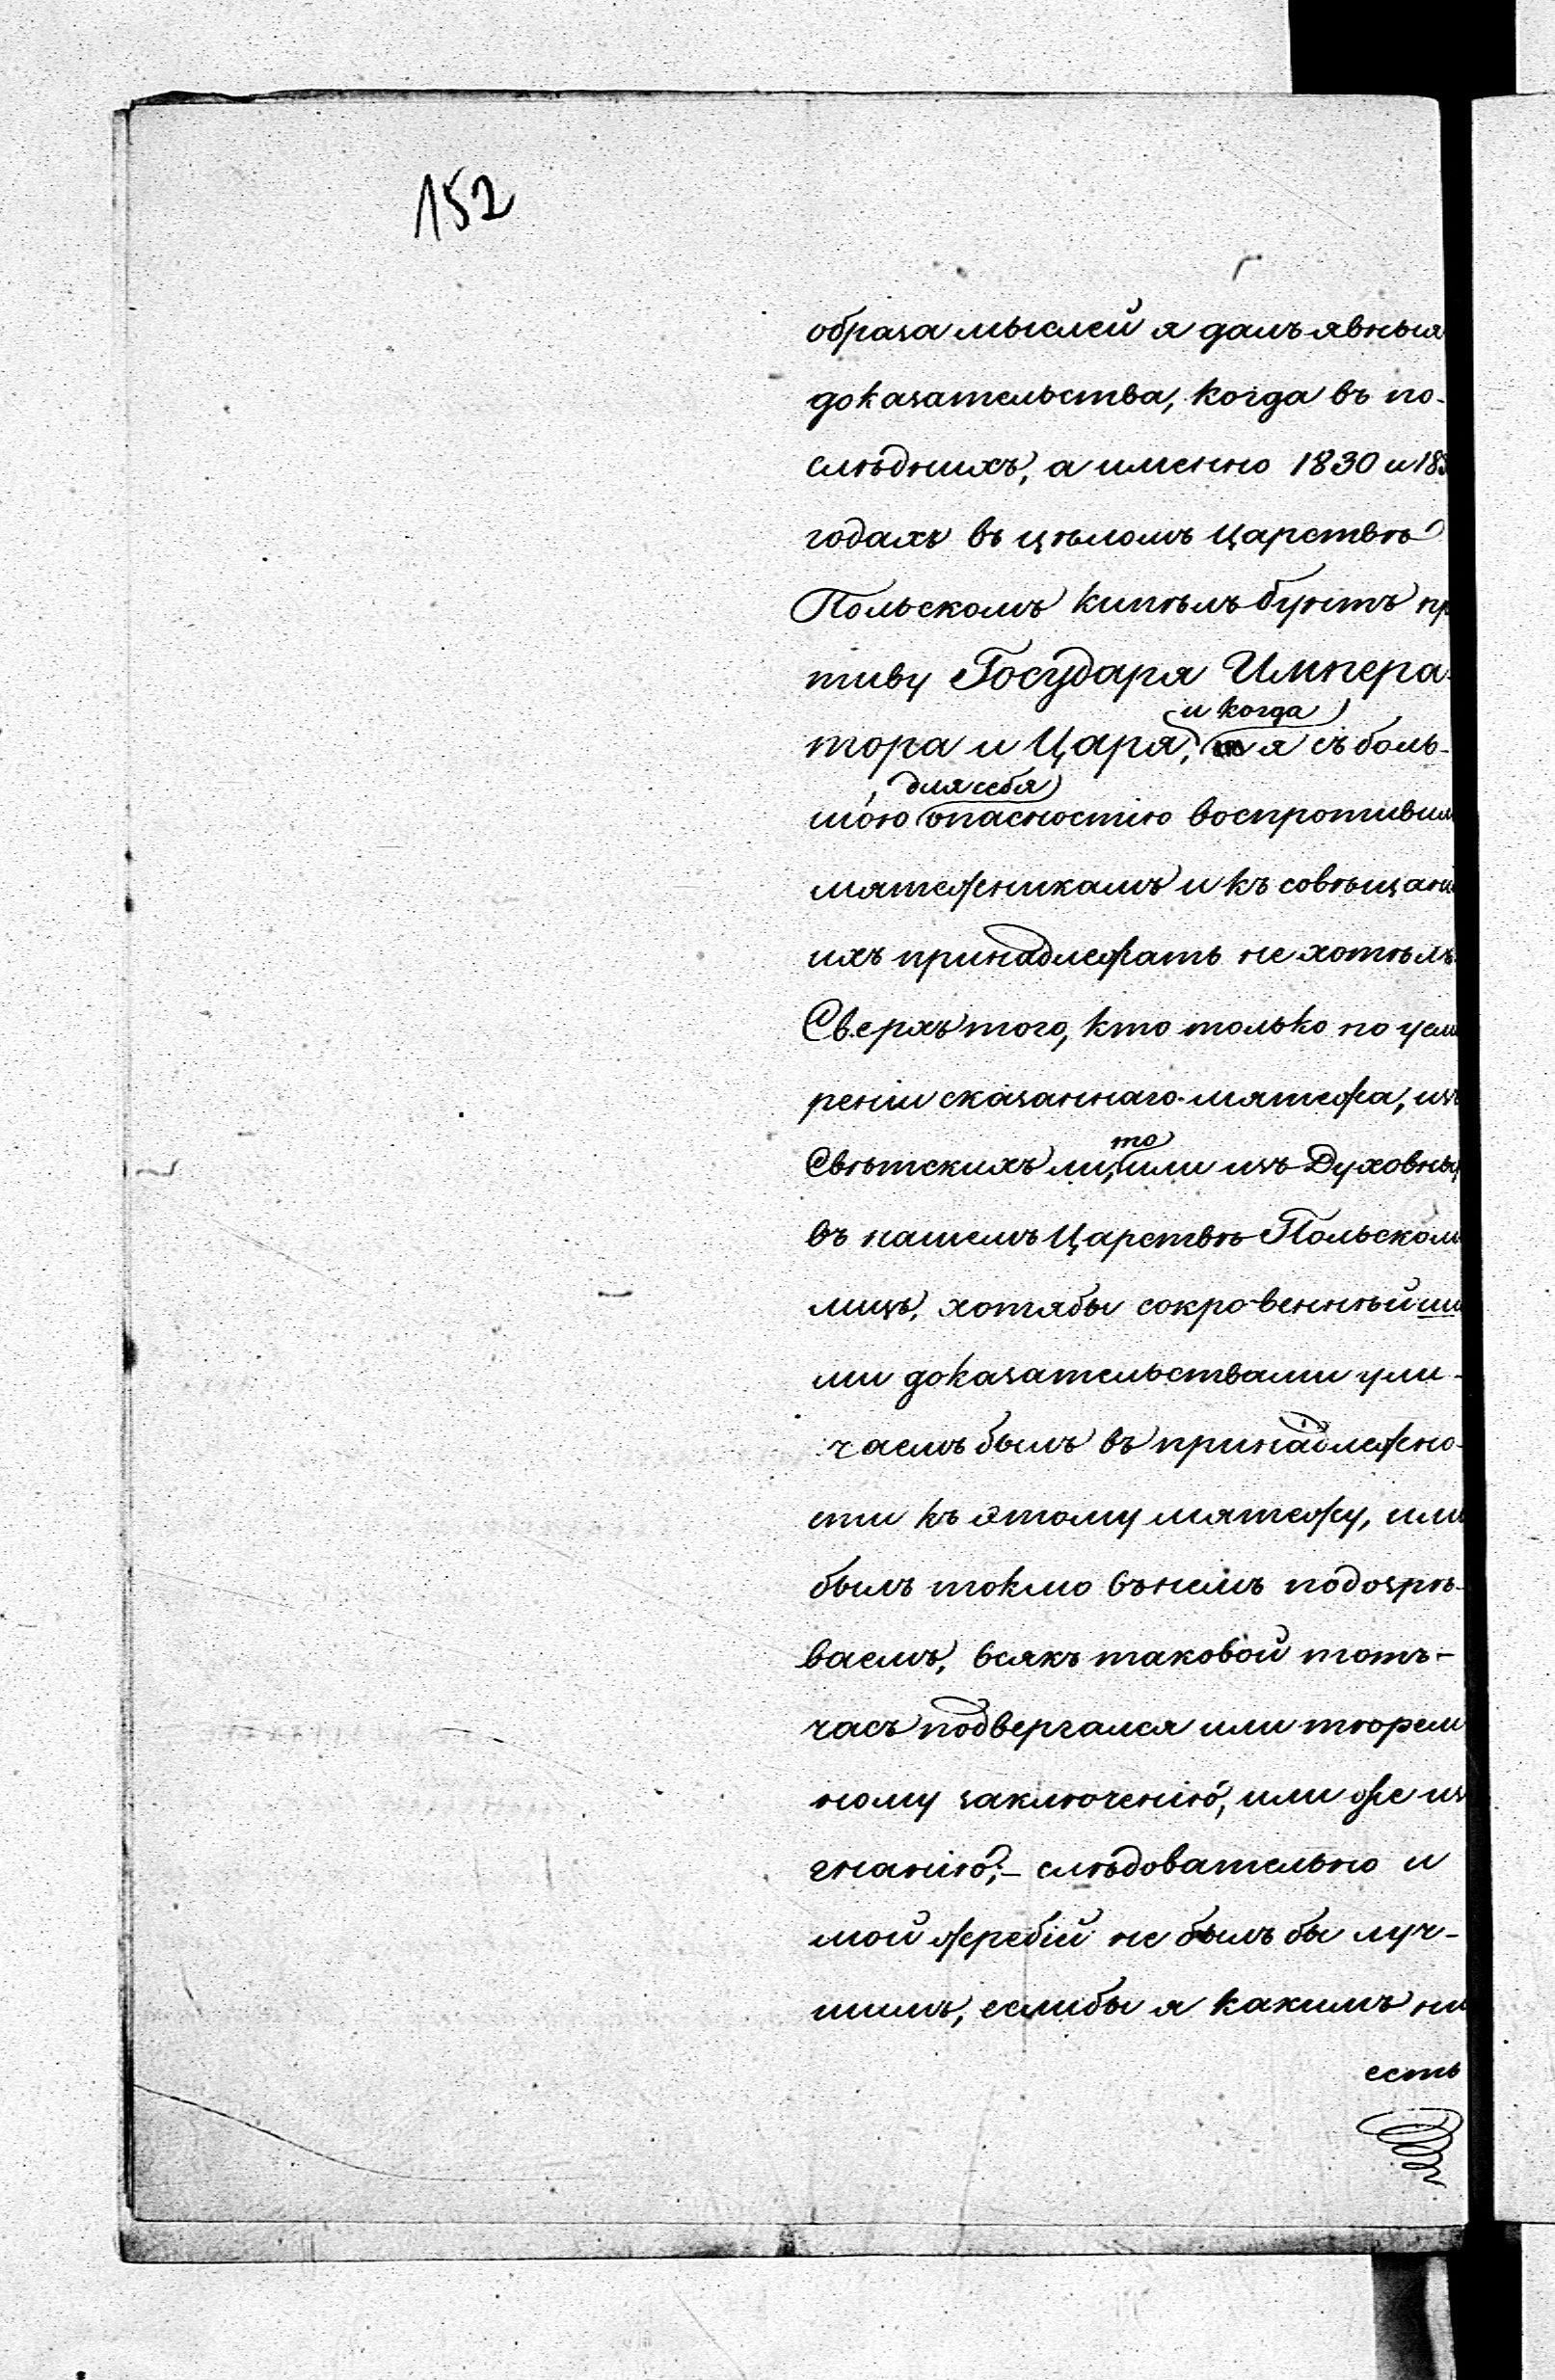 152
образа мыслей я далъ явныя
доказательства, когда въ по-
слѣднихъ, а именно 1830 и 183
годахъ въ цѣломъ Царствѣ
Польскомъ кипѣлъ бунтъ пр
тиву Государя Импера-
и когда
тора и Царя, я съ боль-
для себя
шою опасностію воспротивил
мятежникамъ и къ совѣщані
ихъ принадлежать не хотѣлъ
Сверхъ того, кто только по усми
реніи сказаннаго мятежа, изъ
то
Свѣтскихъ ли, или изъ Духовных
въ нашемъ Царствѣ Польском
лицъ, хотябы сокровеннѣйши
ми доказательствами ули-
чаемъ былъ въ принадлежно-
сти къ этому мятежу, или
былъ токмо въ немъ подозрѣ-
ваемъ, всякъ таковой тотъ-
часъ подвергался или тюрем
ному заключенію, или же из
гнанію; - слѣдовательно и
мой жребій не былъ бы луч-
шимъ, еслибы я какимъ ни
есть